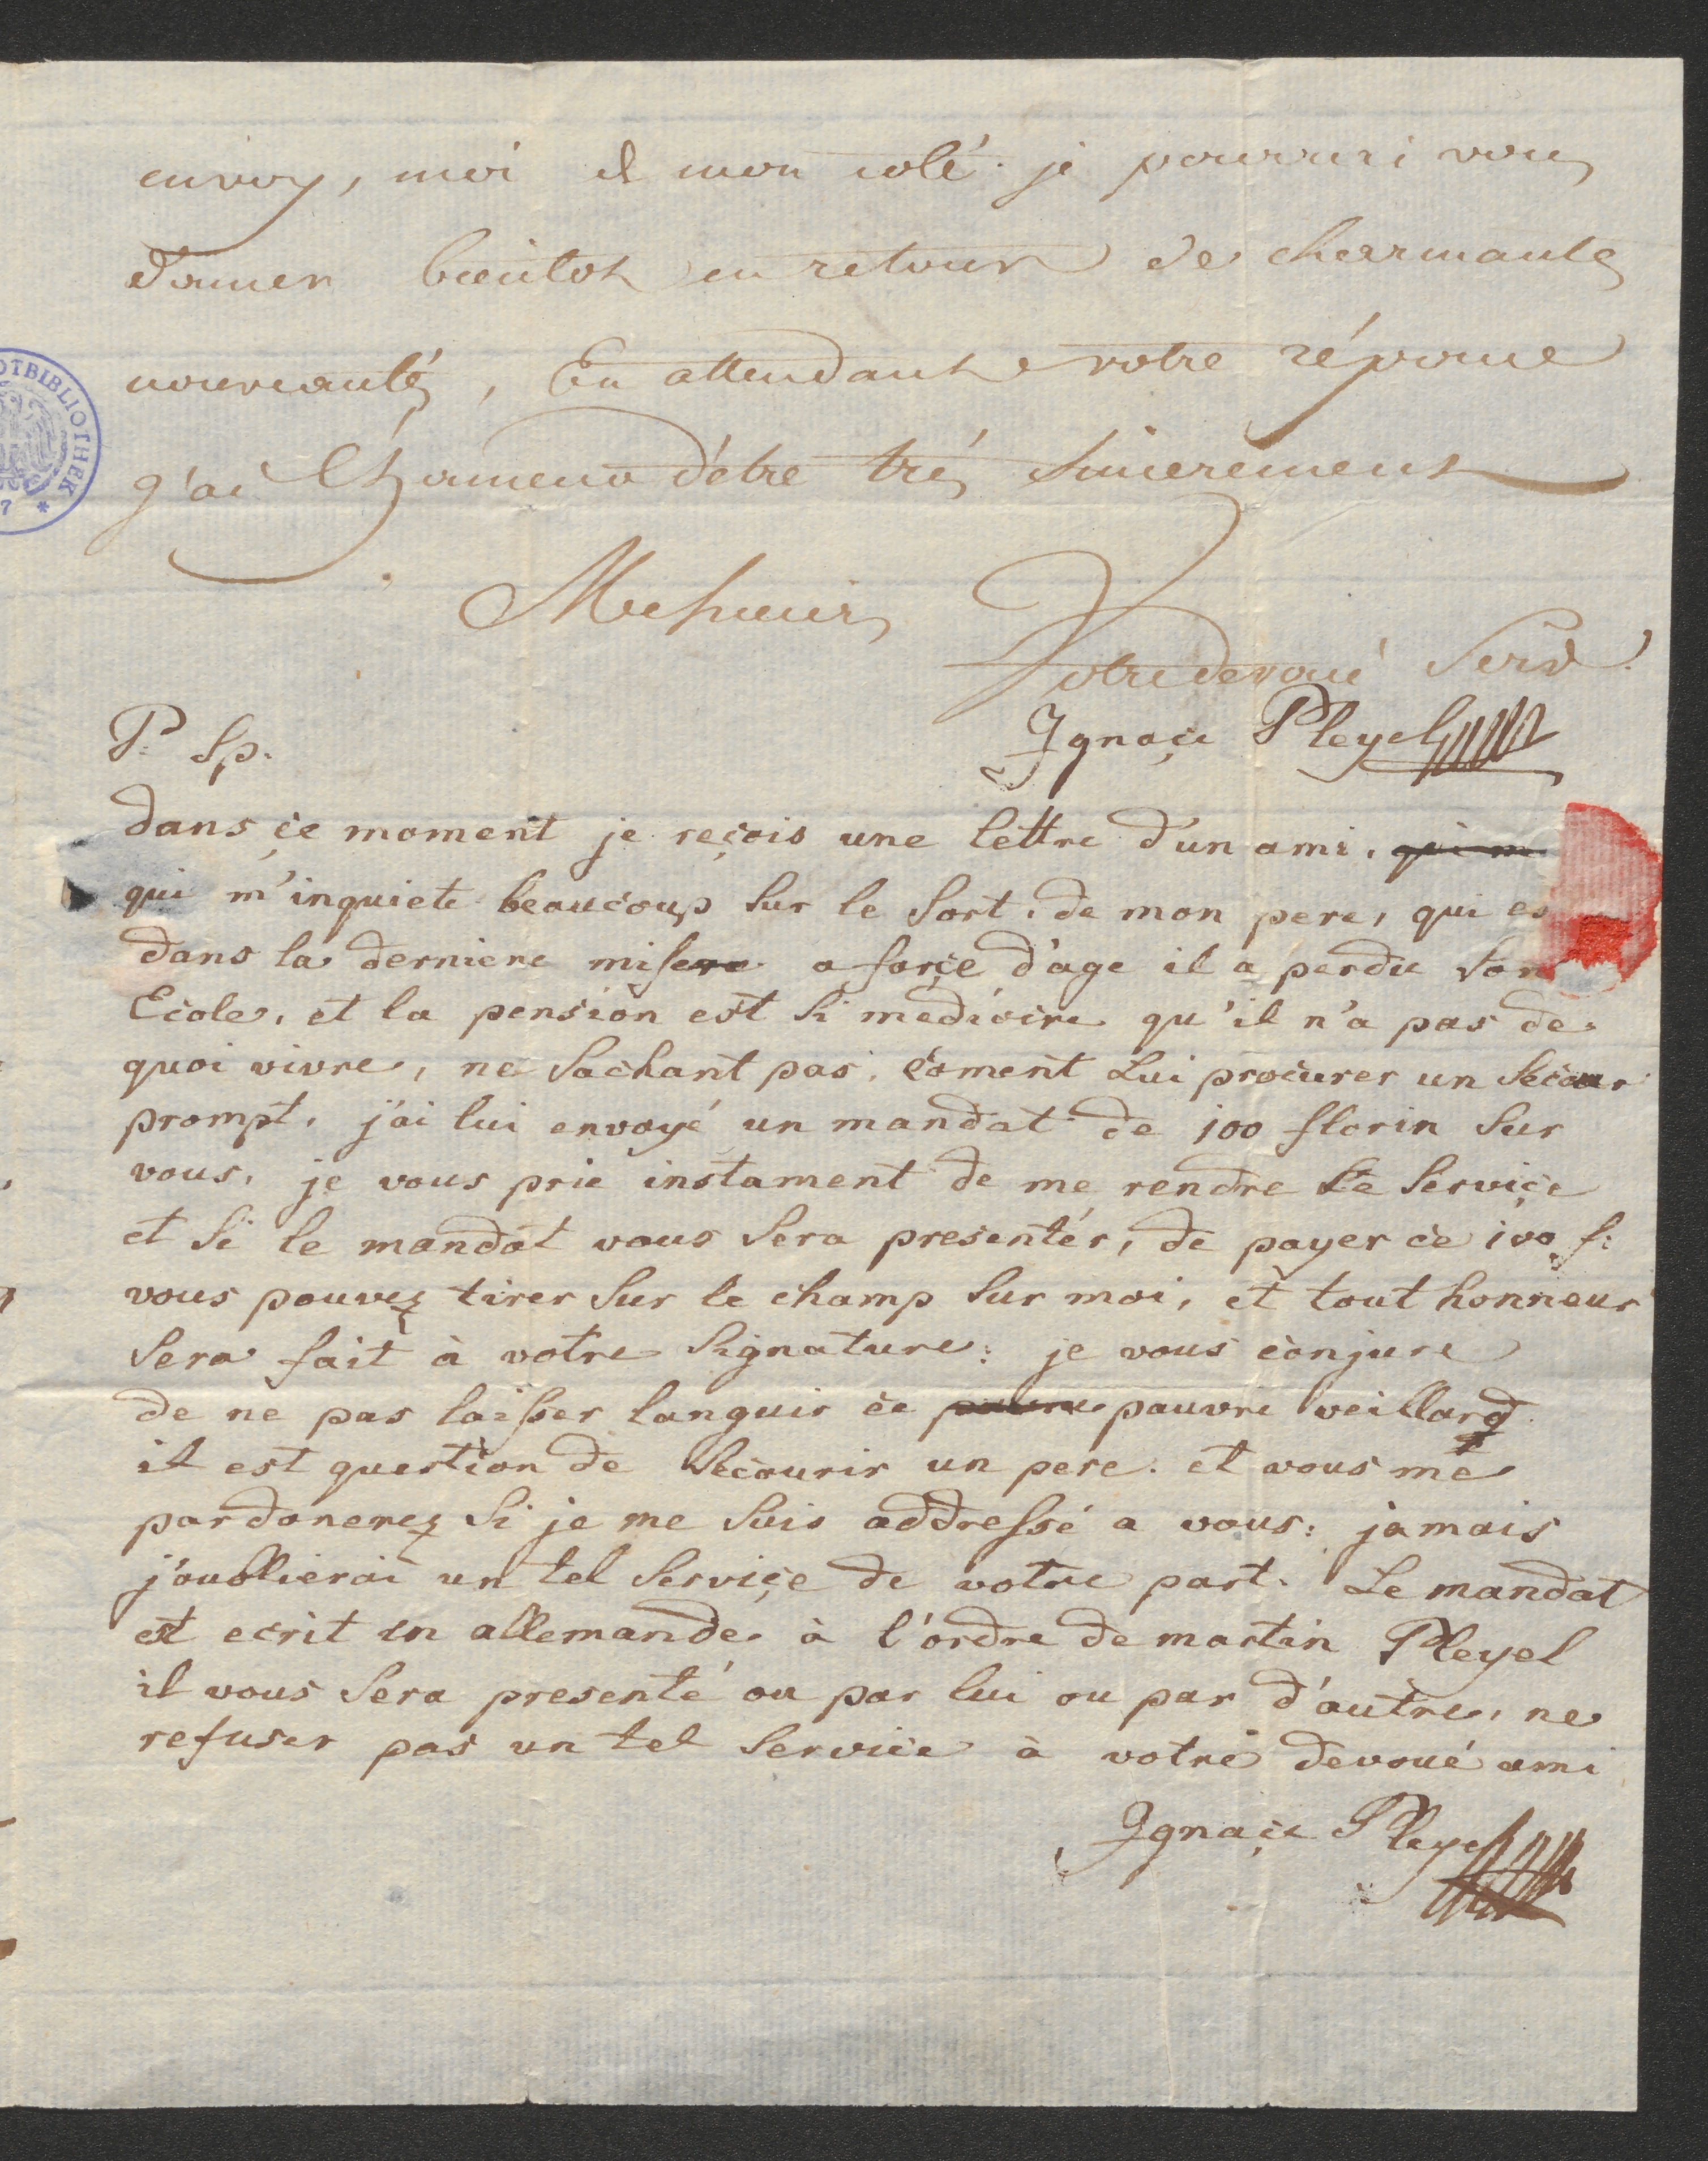 envoy, moi de mon coté je pourrai vous
donner bientot en retour de charmante
nouveautés, En attendant votre réponse
j'ai l'honneur d'être trés sincerement
Messieurs
Votre devoué Serv.
P. Sp. Ignaçe Pleyel
dans çe moment je reçois une lettre d'un ami, qui m
qui m'inquiete beaucoup sur le sort, de mon pere, qui es
dans la derniere misere a forçe d'age il a perdu son
Ecole, et la pension est si mediocre qu'il n'a pas de
quoi vivre, ne sachant pas, coment Lui procurer un secour
prompt, j'ai lui envoyé un mandat de 100 florin sur
vous, je vous prie instament de me rendre Le serviçe
et si le mandat vous sera presentér, de payer ce 100 f:
vous pouvez tirer sur le champ sur moi, et tout honneur
sera fait à votre signature: je vous conjure
de ne pas laisser languir ce pauvre pauvre veillard
il est question de secourir un pere. et vous me
pardonerez si je me suis addressé a vous: jamais
j'oublierai un tel serviçe de votre part. Le mandat
est ecrit en allemande à l'ordre de martin Pleyel
il vous sera presenté ou par lui ou par d'autre, ne
refuser pas un tel service à votre devoué ami
Ignaçe Pleyel
OTBIBLIOTHEK
7 *